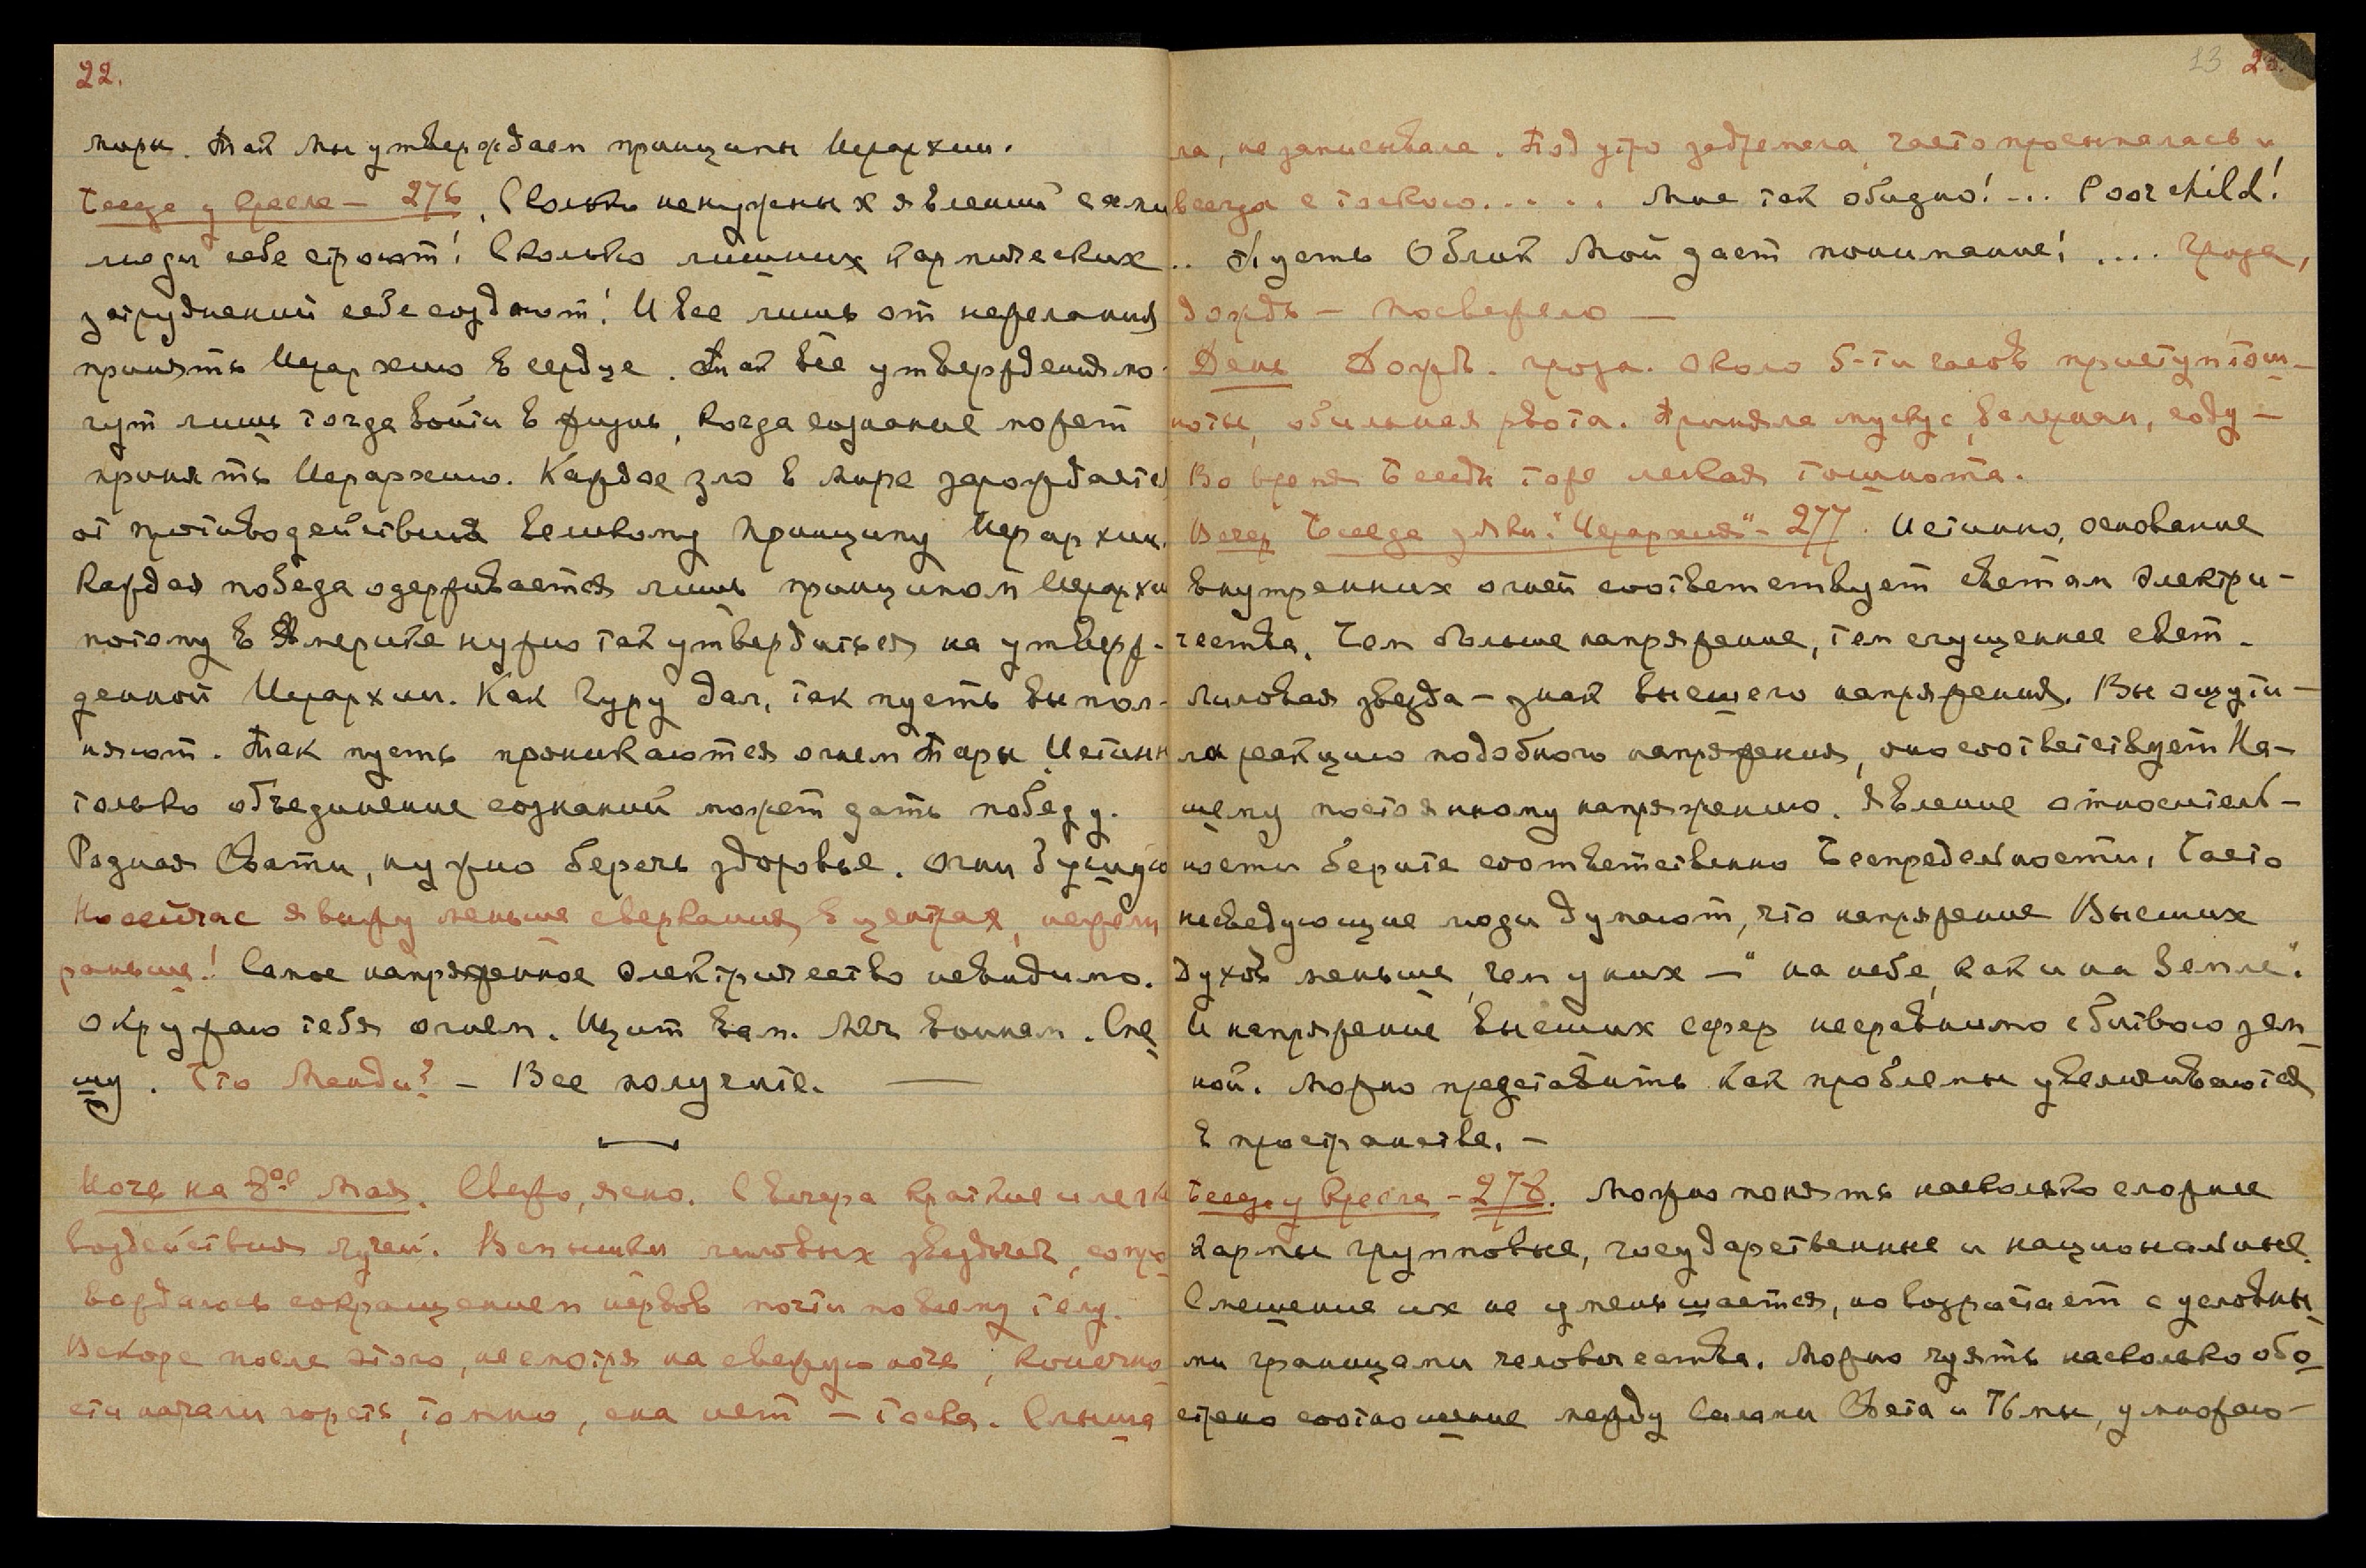 22.
миры. Так мы утверждаем принципы Иерархии.
Беседа у кресла – 276. Сколько ненужных явлений сами
люди себе строят! Сколько лишних кармических
затруднений себе создают! И все лишь от нежелания
принять Иерархию в сердце. Так все утверждения мо-
гут лишь тогда войти в жизнь, когда сознание может
принять Иерархию. Каждое зло в мире зарождается
от противодействия великому принципу Иерархии.
Каждая победа одерживается лишь принципом Иерархии
потому в Америке нужно так утвердиться на утверж-
денной Иерархии. Как Гуру дал, так пусть выпол-
няют. Так пусть проникаются огнем Тары. Истинно
только объединение сознаний может дать победу.
Родная Свати, нужно беречь здоровье. Огни бушую
Но сейчас я вижу меньше сверкания в центрах, нежели
раньше! Самое напряженное электричество невидимо.
Окружаю тебя огнем. Щит вам. Меч воинам. Спе
шу. Что Менди? – Все получите. —
Ночь на 8ое Мая. Свежо, ясно. С вечера краткие и легк
воздействия лучей. Вспышки лиловых звездочек, сопро
вождалось сокращением нервов почти по всему телу.
Вскоре после этого, несмотря на свежую ночь, конечно
сти начали гореть, томно, сна нет – тоска. Слыша
13 23.
ла, не записывала. Под утро задремала, часто просыпалась и
всегда с тоскою. . . . . Мне так обидно! ... Poor child!
.. Пусть Облик Мой дает понимание! .... Гроза,
дождь – посвежело —
День Дождь. гроза. Около 5-ти часов приступ тош-
ноты, обильная рвота. Приняла мускус, валериан, соду –
Во время Беседы тоже легкая тошнота.
Вечер Беседа для кн. "Иерархия" – 277. Истинно, основание
внутренних огней соответствует светам электри-
чества. Чем больше напряжение, тем сгущеннее свет.
Лиловая звезда – знак высшего напряжения. Вы ощути-
ли реакцию подобного напряжения, оно соответствует На-
шему постоянному напряжению. Явление относитель-
ности берите соответственно Беспредельности. Часто
несведующие люди думают, что напряжение Высших
Духов меньше, чем у них – "на небе, как и на Земле".
И напряжение высших сфер несравнимо с битвою зем
ной. Можно представить как проблемы увеличиваются
в пространстве. –
Беседа у Кресла – 278. Можно понять насколько сложны
кармы групповые, государственные и национальные.
Смешение их не уменьшается, но возрастает с условны
ми границами человечества. Можно чуять насколько обо
стрено соотношение между Силами Света и Тьмы, умножаю-